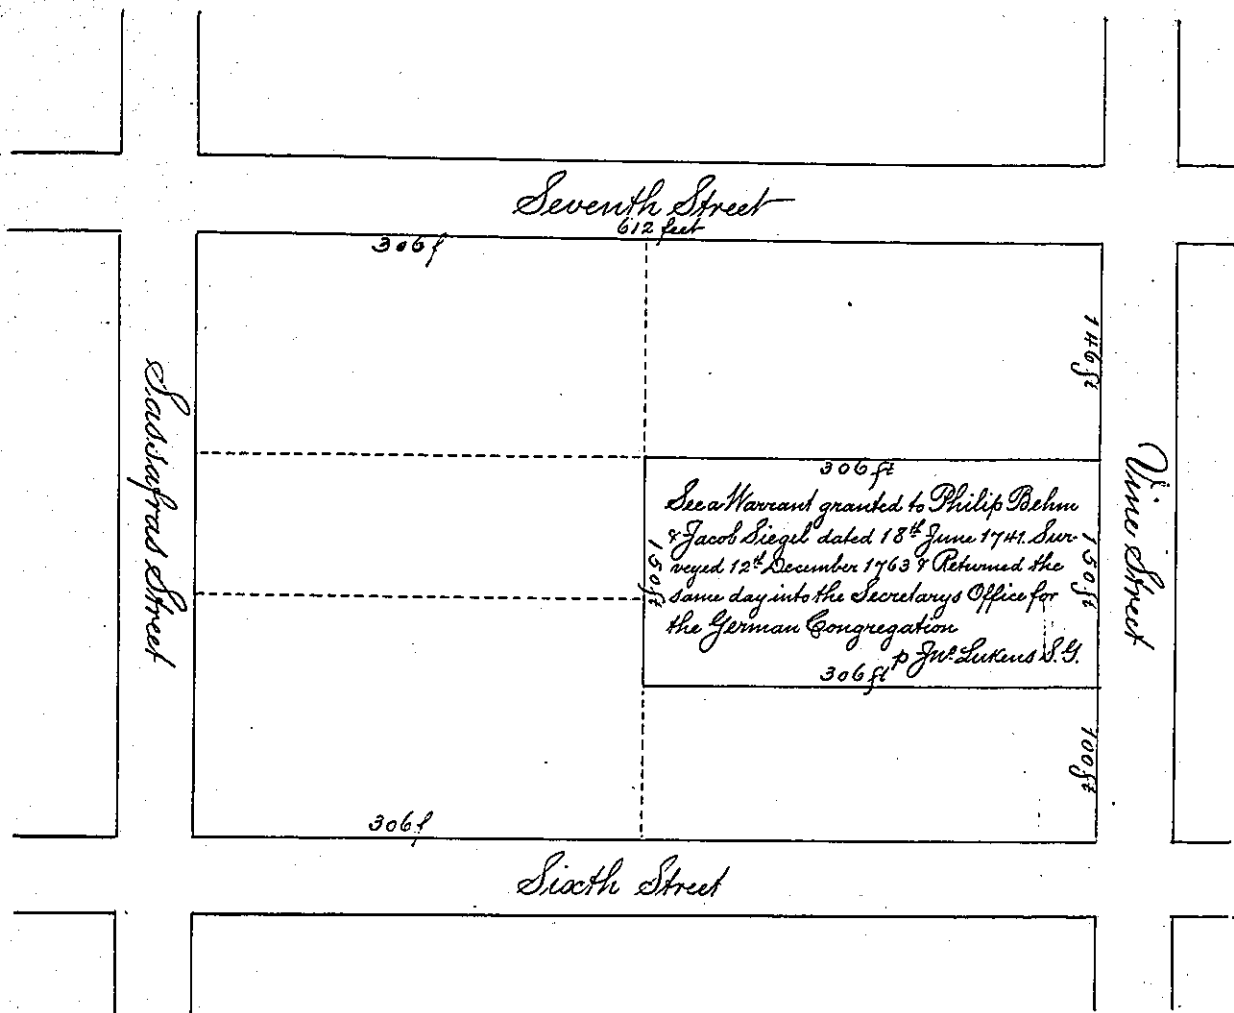 Seventh Street
612 feet
306f
146ft
Sassafras Street
Vine Street
306ft
See a Warrant granted to Philip Behm
& Jacob Siegel dated 18th June 1741. Sur-
veyed 12th December 1763 & Returned the
same day into the Secretarys Office for
the German Congregation
p Jno. Lukens S.G.
150ft
150ft
306ft
100ft
306f
Sixth Street